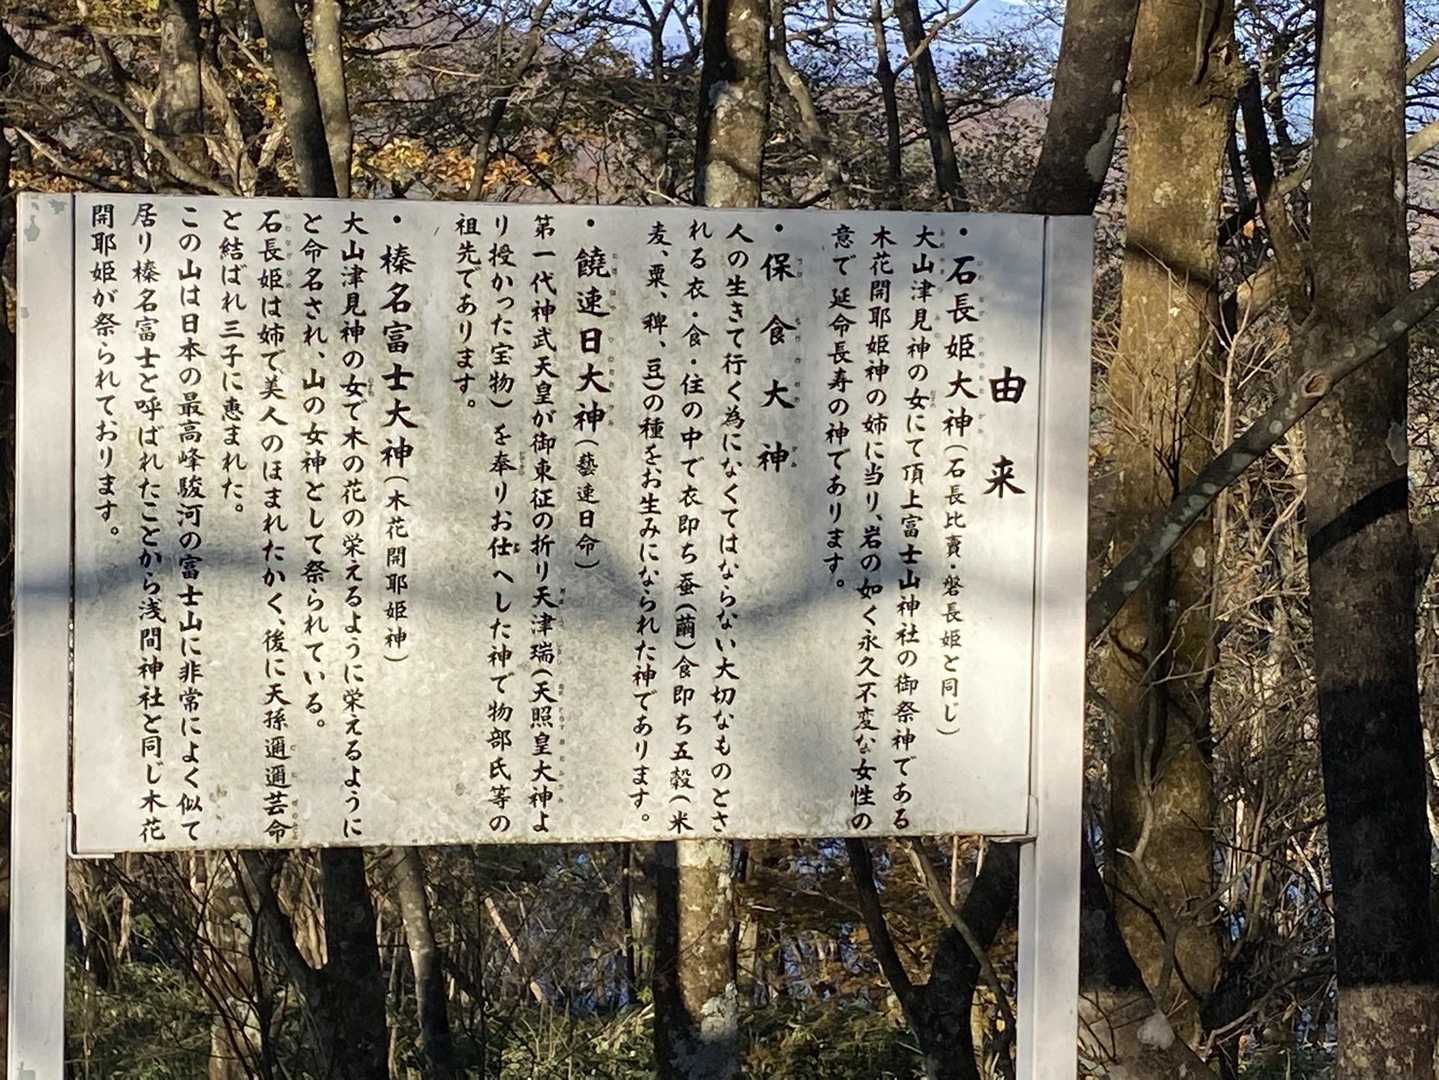 由来
・石長姫大神(石長比賣・磐長姫と同じ)
大山津見神の女にて頂上富士山神社の御祭神である
木花開耶姫神の姉に当り、岩の如く永久不変な女性の
意で延命長寿の神であります。
・保食大神
人の生きて行く為になくてはならない大切なものとさ
れる衣・食・住の中で衣即ち蚕(繭)食即ち五穀(米
麦、粟、稗、豆)の種をお生みになられた神であります。
・饒速日大神(藝速日命)
第一代神武天皇が御東征の折り天津瑞(天照皇大神よ
り授かった宝物)を奉りお仕へした神で物部氏等の
祖先であります。
・榛名富士大神(木花開耶姫神)
大山津見神の女で木の花の栄えるように栄えるように
と命名され、山の女神として祭られている。
石長姫は姉で、美人のほまれたかく、後に天孫邇邇芸命
と結ばれ三子に恵まれた。
この山は日本の最高峰駿河の富士山に非常によく似て
居り榛名富士と呼ばれたことから浅間神社と同じ木花
開耶姫が祭られております。